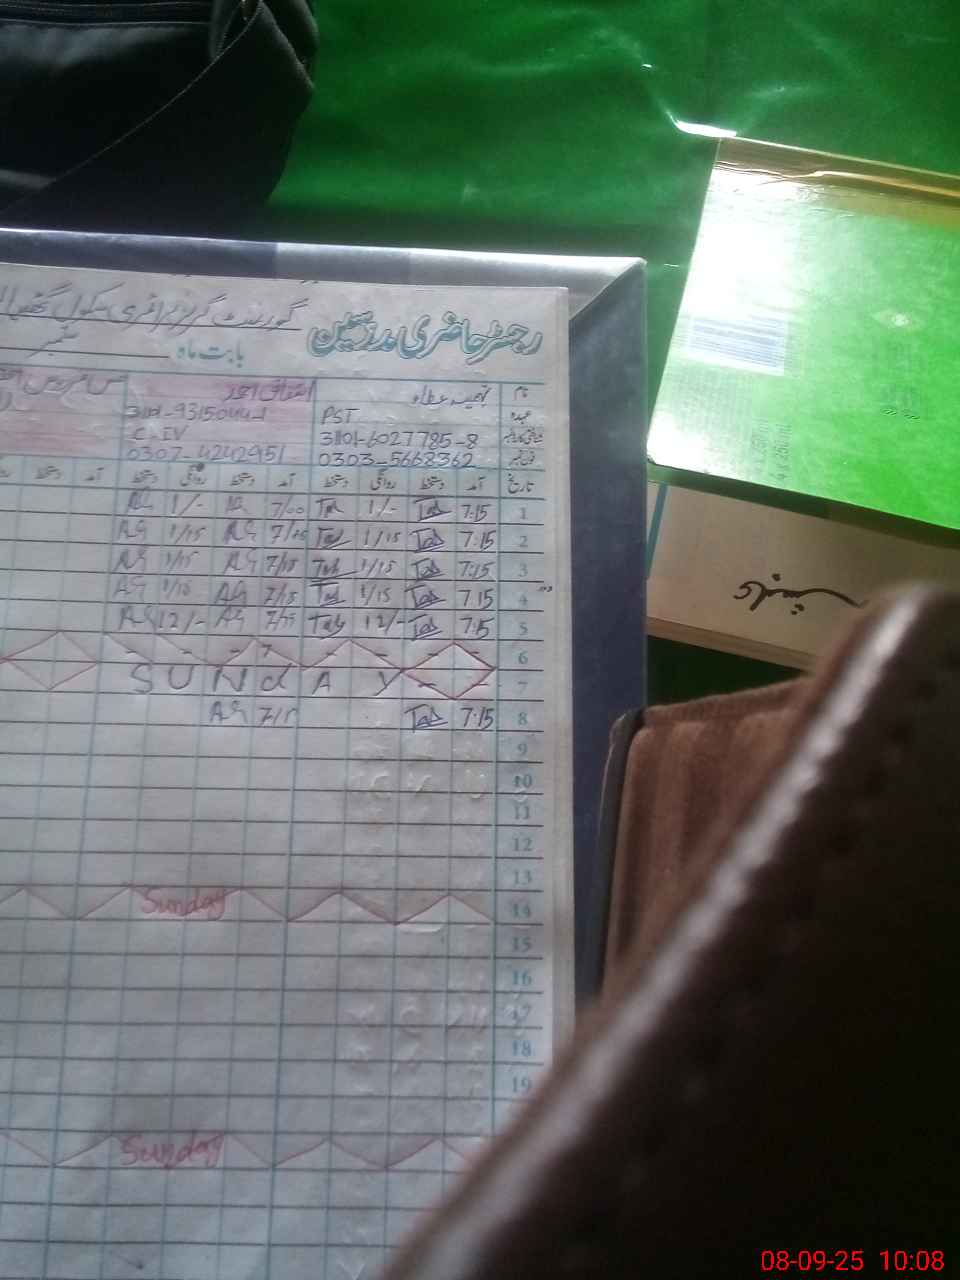 گورنمنٹ گرلز پرائمری سکول
رجسٹر حاضری مدرسین
بابت ماہ ستمبر
نام عطاء اشفاق احمد
عہدہ PST C-IV
31101-6027785-8
فون نمبر 0303-5668362 0307-4242951
تاریخ آمد دستخط روانگی دستخط آمد دستخط روانگی دستخط آمد دستخط
1 7:15 Tab 1/- 7/00 AG 1/- AG
2 7:15 Tab 1/15 Tab 7/15 AG 1/15 AG
3 7:15 Tab 1/15 Tab 7/15 AG 1/15 AG
4 7:15 Tab 1/15 Tab 7/15 AG 1/15 AG
5 7:15 Tab 12/- Tab 7/15 AG 12/- AG
6
7 SUNdAY
8 7:15 Tab 7/15 AG
9
10
11
12
13
14 Sunday
15
16
17
18
19
Sunday
08-09-25 10:08